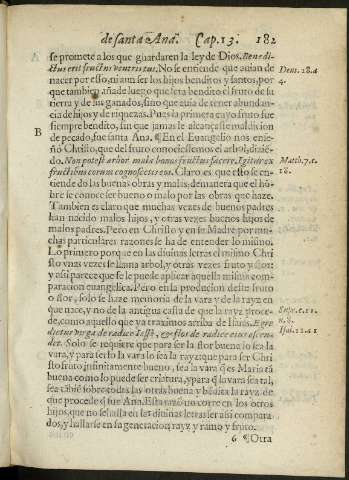 de santa Ana. Cap. 13. 182
se promete a los que guardaren la ley de Dios. Benedi-
ctus erit fructus ventris tui. No se entiende que auian de
nacer por esso, ni aun ser los hijos benditos y santos, por
que tambien añade luego que seria bendito el fruto de su
tierra y de sus ganados, sino que auia de tener abundan
cia de hijos y de riquezas. Pues la primera cuyo fruto fue
siempre bendito, sin que jamas le alcançasse maldicion
de pecado, fue santa Ana. ¶ En el Euangelio nos ense-
ñò Christo, que del fruto conociessemos el arbol, dizië-
do. Non potest arbor mala bonos fructus facere. Igitur ex
fructibus eorum cognoscetis eos. Claro es que esto se en-
tiende de las buenas obras y malas: de manera que el hö-
bre se conoce ser bueno o malo por las obras que haze.
Tambien es claro que muchas vezes de buenos padres
han nacido malos hijos, y otras vezes buenos hijos de
malos padres. Pero en Christo y en su Madre por mu-
chas particulares razones se ha de entender lo mismo.
Lo primero porque en las diuinas letras el mismo Chri
sto vnas vezes se llama arbol, y otras vezes fruto y flor:
y assi parece que se le puede aplicar aquella misma com-
paracion euangelica. Pero en la producion deste fruto
o flor, solo se haze memoria de la vara y de la rayz en
que nace, y no de la antigua casta de que la rayz proce-
de, como aquello que ya traximos arriba de Isaias. Egre
dietur virga de radice Iesse, & flos de radice eius ascen-
det. Solo se requiere que para ser la flor buena lo sea la
vara, y para serlo la vara lo sea la rayz: que para ser Chri
sto fruto infinitamente bueno, sea la vara q̃ es Maria tã
buena como lo puede ser criatura, y para q̃ la vara sea tal,
sea tãbiẽ sobre todas las otras buena y bẽdita la rayz de
que procede q̃ fue Ana. Esta razõ no corre en los otros
hijos, que no se hallã en las diuinas letras ser assi compara
dos, y hallarse en su generacion rayz y ramo y fruto.
6 ¶ Otra
A
B
Deut. 28. a
4.
Matth. 7. c.
18.
Isai. 11. a 1